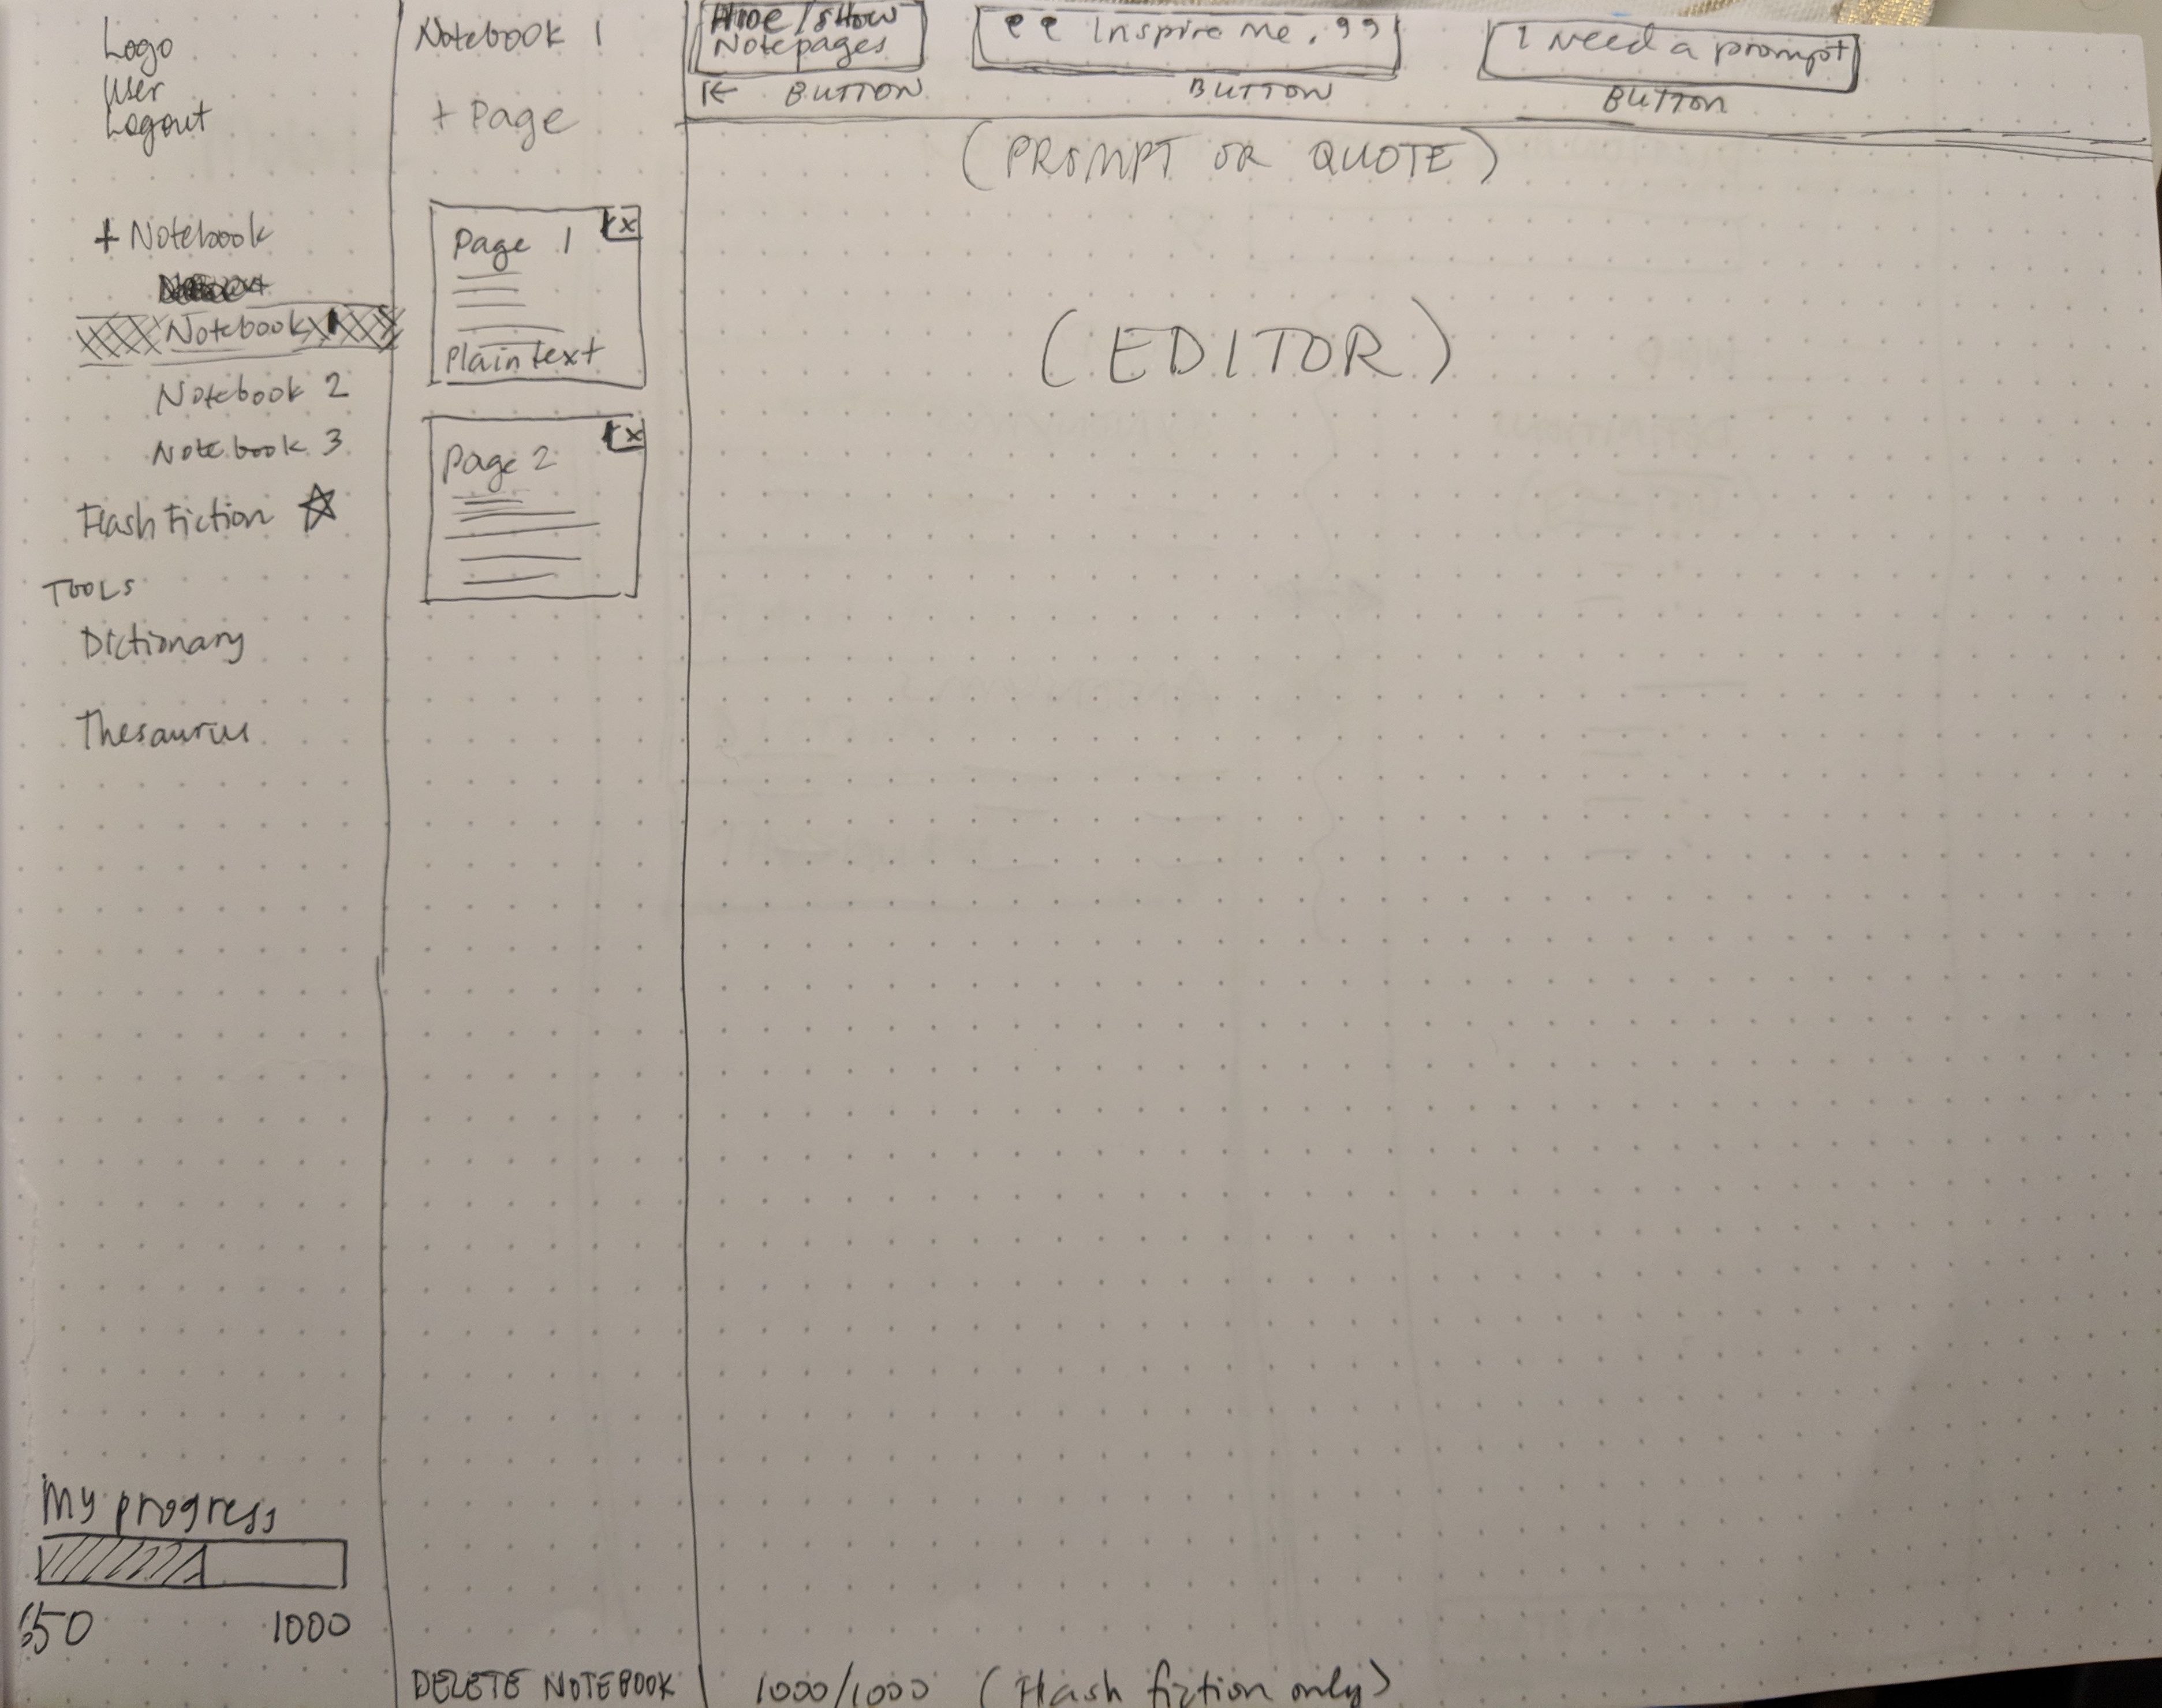 Logo
User
Logout
+ Notebook
Notebook 1
Notebook 2
Notebook 3
Flash Fiction ☆
TOOLS
Dictionary
Thesaurus
My progress
1000
Notebook 1
+ Page
Page 1
x
Plain text
Page 2
x
DELETE NOTEBOOK
HIDE/SHOW
Notepages
BUTTON
Inspire me.
BUTTON
I need a prompt
BUTTON
(PROMPT OR QUOTE)
(EDITOR)
1000/1000 (Flash fiction only)